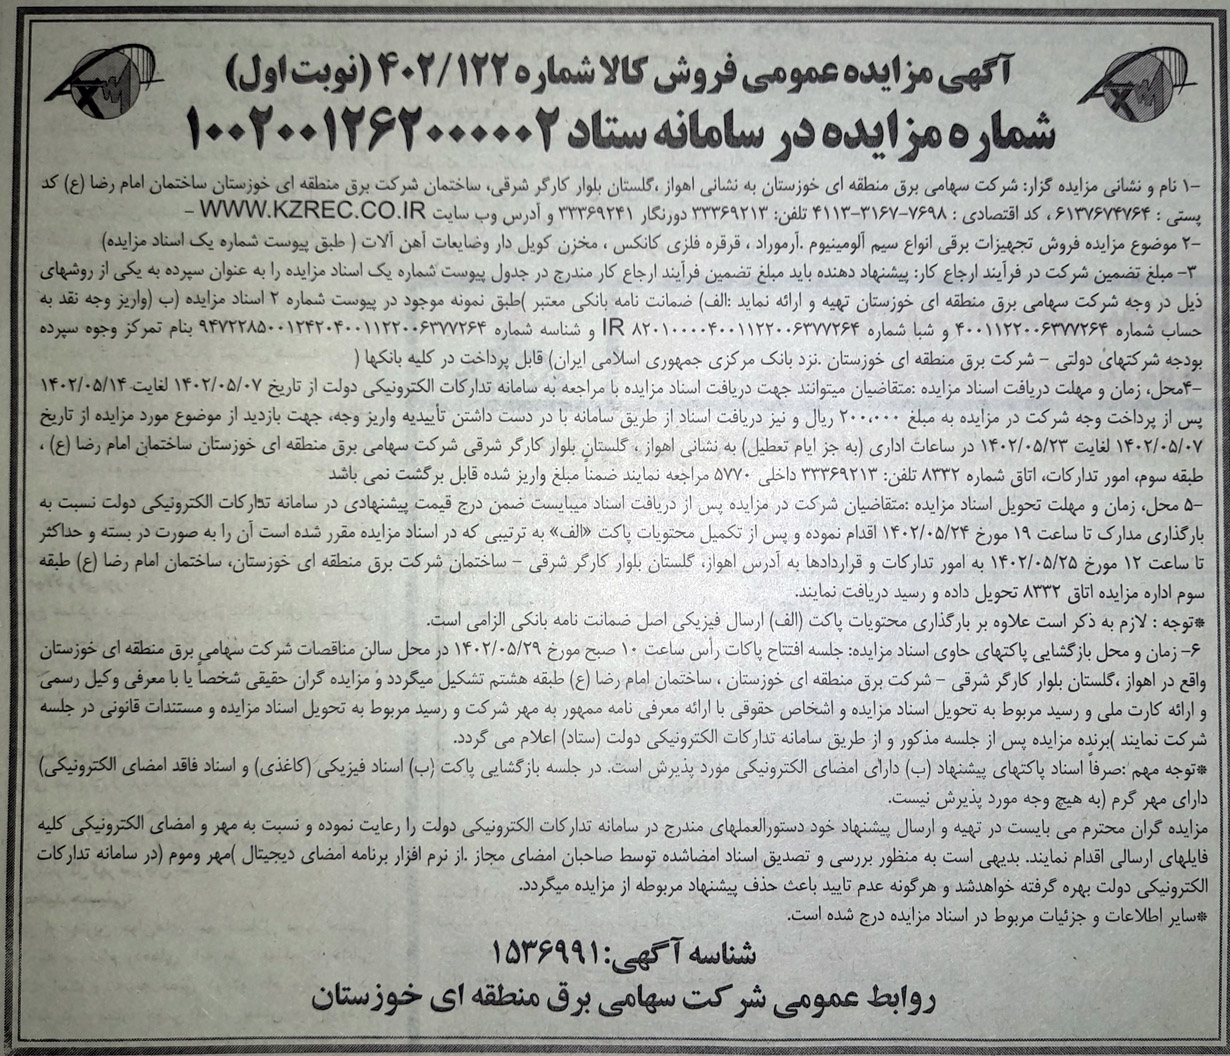 آگهی مزایده عمومی فروش کالا شماره ۴۰۲/۱۲۲ (نوبت اول)
شماره مزایده در سامانه ستاد ۱۰۰۲۰۰۱۲۶۲۰۰۰۰۰۲
-۱ نام و نشانی مزایده گزار: شرکت سهامی برق منطقه ای خوزستان به نشانی اهواز ،گلستان بلوار کارگر شرقی، ساختمان شرکت برق منطقه ای خوزستان ساختمان امام رضا (ع) کد
پستی : ۶۱۳۷۶۷۴۷۶۴ ، کد اقتصادی : ۷۶۹۸-۳۱۶۷-۴۱۱۳ تلفن: ۳۳۳۶۹۲۱۳ دورنگار ۳۳۳۶۹۲۴۱ و آدرس وب سایت WWW.KZREC.CO.IR -
-۲ موضوع مزایده فروش تجهیزات برقی انواع سیم آلومینیوم .آرموراد ، قرقره فلزی کانکس ، مخزن کویل دار وضایعات آهن آلات ( طبق پیوست شماره یک اسناد مزایده)
۳- مبلغ تضمین شرکت در فرآیند ارجاع کار: پیشنهاد دهنده باید مبلغ تضمین فرآیند ارجاع کار مندرج در جدول پیوست شماره یک اسناد مزایده را به عنوان سپرده به یکی از روشهای
ذیل در وجه شرکت سهامی برق منطقه ای خوزستان تهیه و ارائه نماید :الف) ضمانت نامه بانکی معتبر )طبق نمونه موجود در پیوست شماره ۲ اسناد مزایده (ب (واریز وجه نقد به
حساب شماره ۴۰۰۱۱۲۲۰۰۶۳۷۷۲۶۴ و شبا شماره IR ۸۲۰۱۰۰۰۰۴۰۰۱۱۲۲۰۰۶۳۷۷۲۶۴ و شناسه شماره ۹۴۷۲۲۸۵۰۰۱۲۴۲۰۴۰۰۱۱۲۲۰۰۶۳۷۷۲۶۴ بنام تمرکز وجوه سپرده
بودجه شرکتهای دولتی - شرکت برق منطقه ای خوزستان .نزد بانک مرکزی جمهوری اسلامی ایران) قابل پرداخت در کلیه بانکها (
-۴محل، زمان و مهلت دریافت اسناد مزایده :متقاضیان میتوانند جهت دریافت اسناد مزایده با مراجعه به سامانه تدارکات الکترونیکی دولت از تاریخ ۱۴۰۲/۰۵/۰۷ لغایت ۱۴۰۲/۰۵/۱۴
پس از پرداخت وجه شرکت در مزایده به مبلغ ۲۰۰،۰۰۰ ریال و نیز دریافت اسناد از طریق سامانه با در دست داشتن تأییدیه واریز وجه، جهت بازدید از موضوع مورد مزایده از تاریخ
۱۴۰۲/۰۵/۰۷ لغایت ۱۴۰۲/۰۵/۲۳ در ساعات اداری (به جز ایام تعطیل) به نشانی اهواز ، گلستان بلوار کارگر شرقی شرکت سهامی برق منطقه ای خوزستان ساختمان امام رضا (ع) ،
طبقه سوم، امور تدارکات، اتاق شماره ۸۳۳۲ تلفن: ۳۳۳۶۹۲۱۳ داخلی ۵۷۷۰ مراجعه نمایند ضمناً مبلغ واریز شده قابل برگشت نمی باشد
-۵ محل، زمان و مهلت تحویل اسناد مزایده :متقاضیان شرکت در مزایده پس از دریافت اسناد میبایست ضمن درج قیمت پیشنهادی در سامانه تدارکات الکترونیکی دولت نسبت به
بارگذاری مدارک تا ساعت ۱۹ مورخ ۱۴۰۲/۰۵/۲۴ اقدام نموده و پس از تکمیل محتویات پاکت «الف» به ترتیبی که در اسناد مزایده مقرر شده است آن را به صورت در بسته و حداکثر
تا ساعت ۱۲ مورخ ۱۴۰۲/۰۵/۲۵ به امور تدارکات و قراردادها به آدرس اهواز، گلستان بلوار کارگر شرقی - ساختمان شرکت برق منطقه ای خوزستان، ساختمان امام رضا (ع) طبقه
سوم اداره مزایده اتاق ۸۳۳۲ تحویل داده و رسید دریافت نمایند.
*توجه : لازم به ذکر است علاوه بر بارگذاری محتویات پاکت (الف) ارسال فیزیکی اصل ضمانت نامه بانکی الزامی است.
۶- زمان و محل بازگشایی پاکتهای حاوی اسناد مزایده: جلسه افتتاح پاکات رأس ساعت ۱۰ صبح مورخ ۱۴۰۲/۰۵/۲۹ در محل سالن مناقصات شرکت سهامی برق منطقه ای خوزستان
واقع در اهواز ،گلستان بلوار کارگر شرقی - شرکت برق منطقه ای خوزستان ، ساختمان امام رضا (ع) طبقه هشتم تشکیل میگردد و مزایده گران حقیقی شخصاً یا با معرفی وکیل رسمی
و ارائه کارت ملی و رسید مربوط به تحویل اسناد مزایده و اشخاص حقوقی با ارائه معرفی نامه ممهور به مهر شرکت و رسید مربوط به تحویل اسناد مزایده و مستندات قانونی در جلسه
شرکت نمایند )برنده مزایده پس از جلسه مذکور و از طریق سامانه تدارکات الکترونیکی دولت (ستاد) اعلام می گردد.
*توجه مهم :صرفاً اسناد پاکتهای پیشنهاد (ب) دارای امضای الکترونیکی مورد پذیرش است. در جلسه بازگشایی پاکت (ب) اسناد فیزیکی (کاغذی) و اسناد فاقد امضای الکترونیکی)
دارای مهر گرم (به هیچ وجه مورد پذیرش نیست.
مزایده گران محترم می بایست در تهیه و ارسال پیشنهاد خود دستورالعملهای مندرج در سامانه تدارکات الکترونیکی دولت را رعایت نموده و نسبت به مهر و امضای الکترونیکی کلیه
فایلهای ارسالی اقدام نمایند. بدیهی است به منظور بررسی و تصدیق اسناد امضاشده توسط صاحبان امضای مجاز .از نرم افزار برنامه امضای دیجیتال )مهر وموم (در سامانه تدارکات
الکترونیکی دولت بهره گرفته خواهدشد و هرگونه عدم تایید باعث حذف پیشنهاد مربوطه از مزایده میگردد.
*سایر اطلاعات و جزئیات مربوط در اسناد مزایده درج شده است.
شناسه آگهی:۱۵۳۶۹۹۱
روابط عمومی شرکت سهامی برق منطقه ای خوزستان